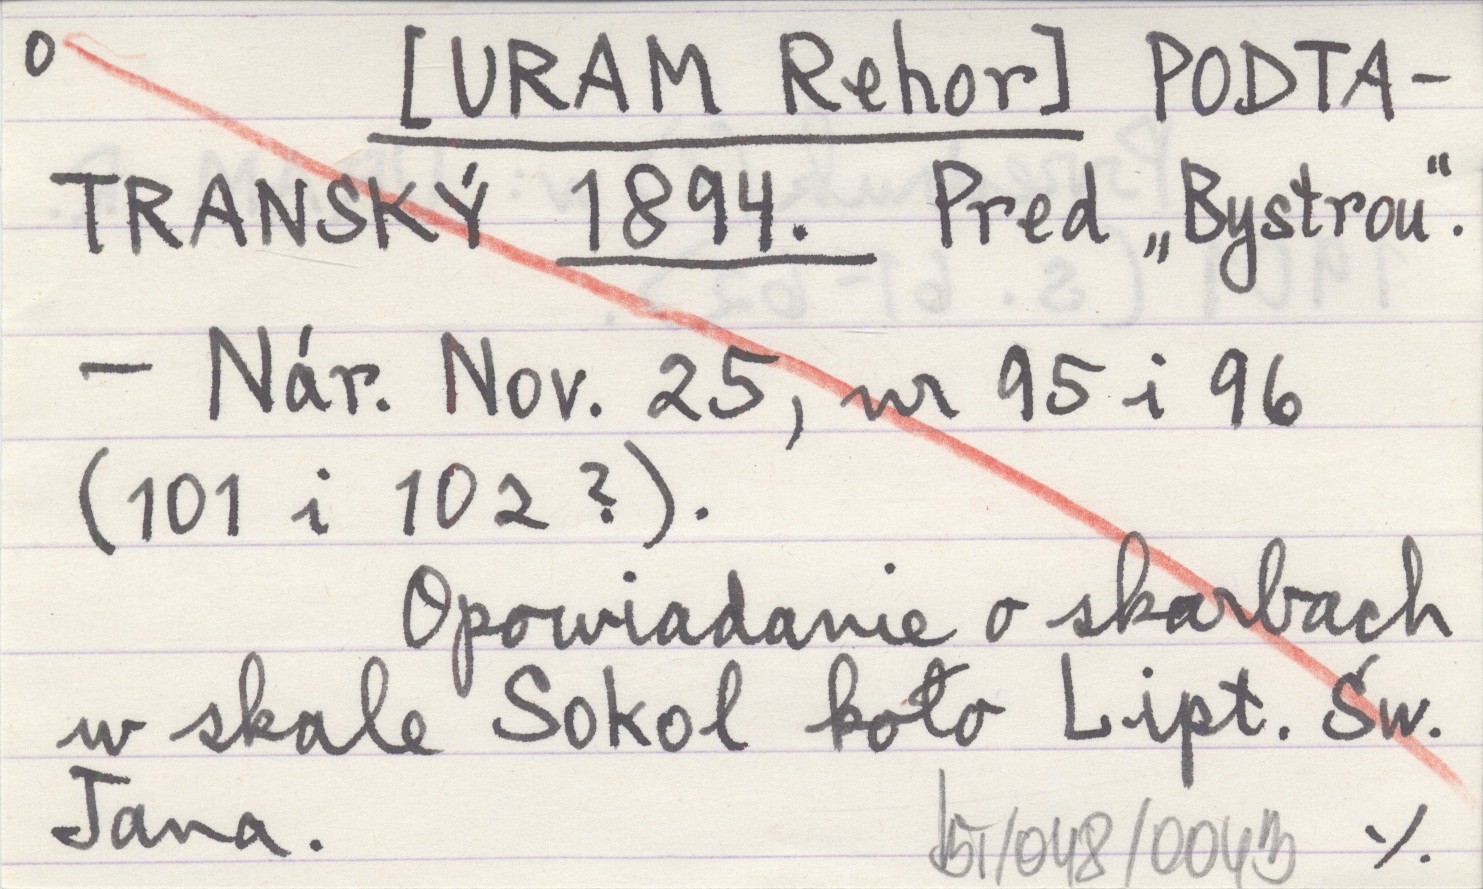 o [URAM Rehor] PODTA-
TRANSKÝ 1894. Pred „Bystrou“.
— Nár. Nov. 25, nr 95 i 96
(101 i 102?).
Opowiadanie o skarbach
w skale Sokol koło Lipt. Św.
Jana.
./.